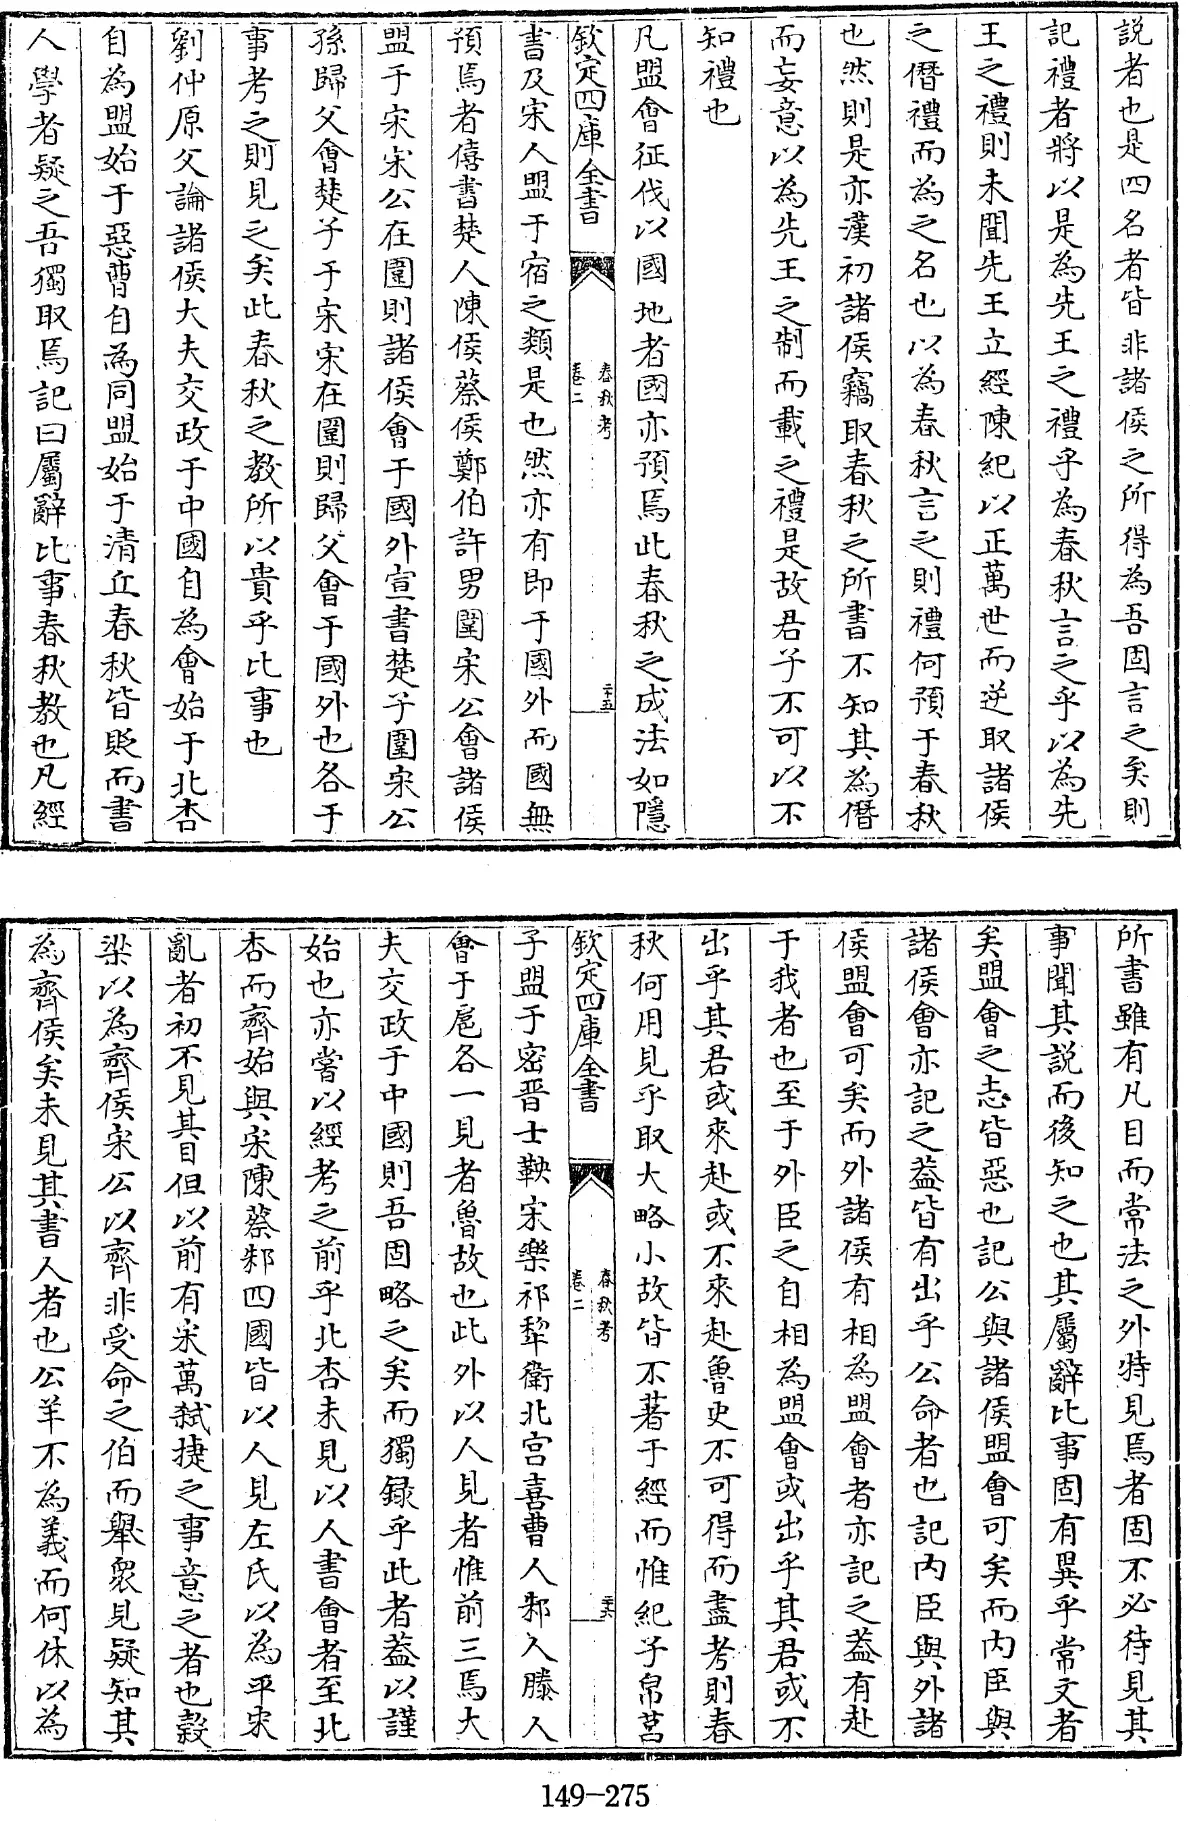 説者也是四名者皆非諸侯之所得為吾固言之矣則
記禮者將以是為先王之禮乎為春秋言之乎以為先
王之禮則未聞先王立經陳紀以正萬世而逆取諸侯
之僭禮而為之名也以為春秋言之則禮何預于春秋
也然則是亦漢初諸侯竊取春秋之所書不知其為僭
而妄意以為先王之制而載之禮是故君子不可以不
知禮也
凡盟會征伐以國地者國亦預焉此春秋之成法如隱
欽定四庫全書
春秋考
卷二
二十五
書及宋人盟于宿之類是也然亦有即于國外而國無
預焉者僖書楚人陳侯蔡侯鄭伯許男圍宋公會諸侯
盟于宋宋公在圍則諸侯會于國外宣書楚子圍宋公
孫歸父會楚子于宋宋在圍則歸父會于國外也各于
事考之則見之矣此春秋之教所以貴乎比事也
劉仲原父論諸侯大夫交政于中國自為會始于北杏
自為盟始于惡曹自為同盟始于清丘春秋皆貶而書
人學者疑之吾獨取焉記曰屬辭比事春秋教也凡經
所書雖有凡目而常法之外特見焉者固不必待見其
事聞其説而後知之也其屬辭比事固有異乎常文者
矣盟會之志皆惡也記公與諸侯盟會可矣而内臣與
諸侯會亦記之葢皆有出乎公命者也記内臣與外諸
侯盟會可矣而外諸侯有相為盟會者亦記之葢有赴
于我者也至于外臣之自相為盟會或出乎其君或不
出乎其君或來赴或不來赴魯史不可得而盡考則春
秋何用見乎取大略小故皆不著于經而惟紀子帛莒
欽定四庫全書
春秋考
卷二
二十六
子盟于密晉士鞅宋樂祁犂衛北宫喜曹人邾人滕人
會于扈各一見者魯故也此外以人見者惟前三焉大
夫交政于中國則吾固略之矣而獨録乎此者葢以謹
始也亦嘗以經考之前乎北杏未見以人書會者至北
杏而齊始與宋陳蔡邾四國皆以人見左氏以為平宋
亂者初不見其目但以前有宋萬弑捷之事意之者也穀
梁以為齊侯宋公以齊非受命之伯而舉衆見疑知其
為齊侯矣未見其書人者也公羊不為義而何休以為
149-275